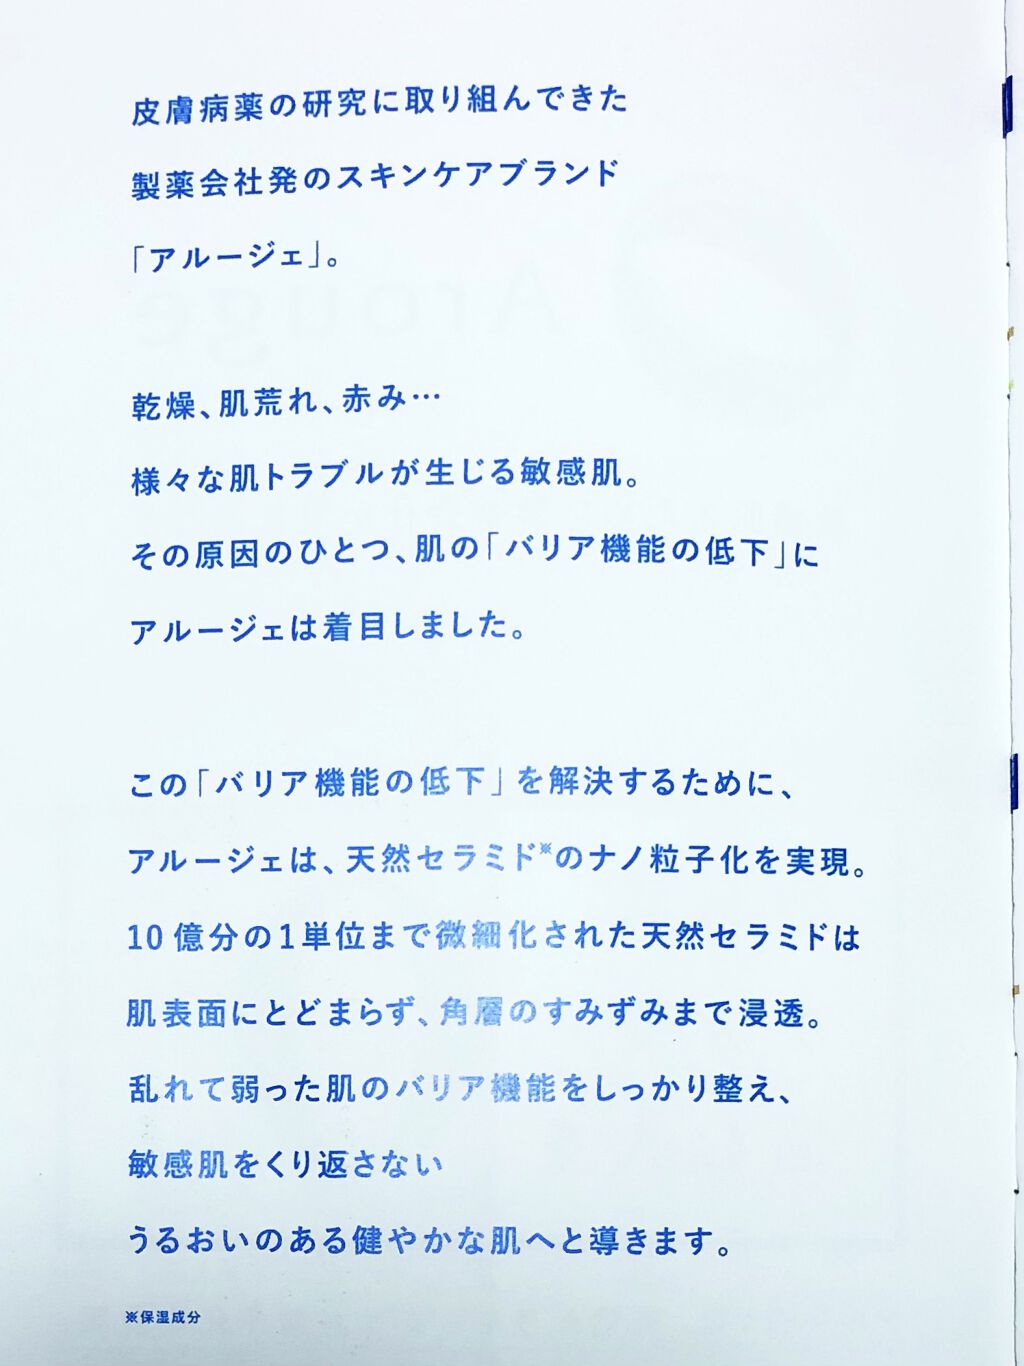 皮膚病薬の研究に取り組んできた
製薬会社発のスキンケアブランド
「アルージェ」。
乾燥、肌荒れ、赤み…
様々な肌トラブルが生じる敏感肌。
その原因のひとつ、肌の「バリア機能の低下」に
アルージェは着目しました。
この「バリア機能の低下」を解決するために、
アルージェは、天然セラミド※のナノ粒子化を実現。
10億分の1単位まで微細化された天然セラミドは
肌表面にとどまらず、角層のすみずみまで浸透。
乱れて弱った肌のバリア機能をしっかり整え、
敏感肌をくり返さない
うるおいのある健やかな肌へと導きます。
※保湿成分